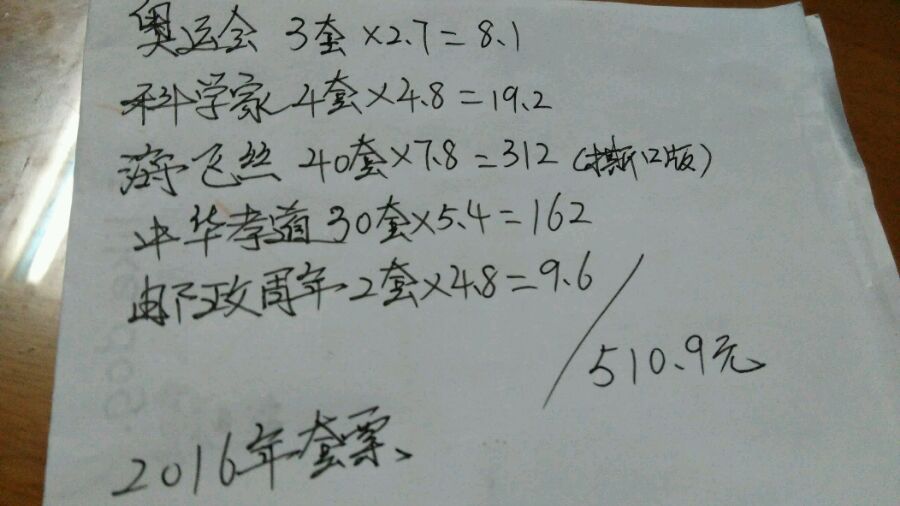 奥运会 3套×2.7=8.1
科学家 4套×4.8=19.2
海飞丝 40套×7.8=312 (撕口版)
中华孝道 30套×5.4=162
邮政周年 2套×4.8=9.6
510.9元
2016年套票